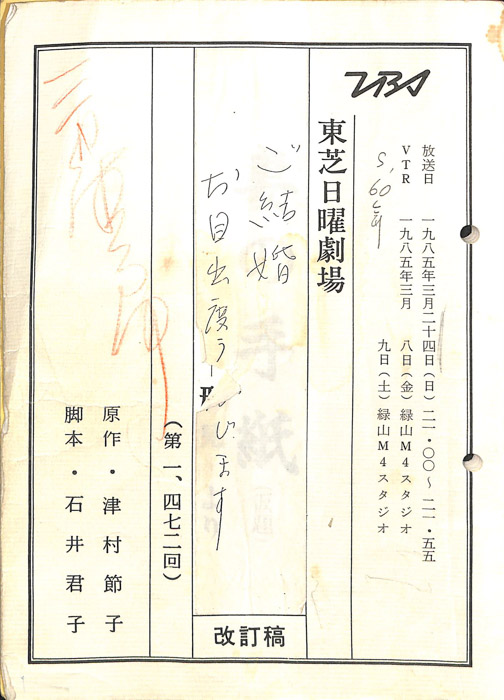 TBS
放送日 一九八五年三月二十四日(日) 二一・〇〇〜二一・五五
VTR 一九八五年三月 八日(金) 緑山M4スタジオ
九日(土) 緑山M4スタジオ
S.60年
東芝日曜劇場
ご結婚
お目出度う
じます
手紙
(第一、四七二回)
改訂稿
原作・津村節子
脚本・石井君子